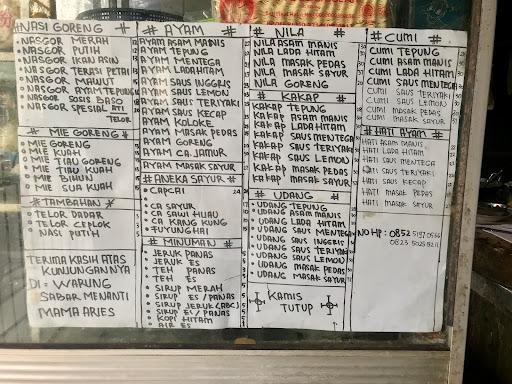 #NASI GORENG #
NASGOR MERAH
NASGOR PUTIH
NASGOR IKAN ASIN
NASGOR TERSI PETAI
NASGOR MAWUT
NASGOR AYAM TEPUNG
NASGOR SOSIS BASO
NASGOR SPESIAL ATI
TELOR
# MIE GORENG #
MIE GORENG
MIE KUAH
MIE TIAU GORENG
MIE TIAU KUAH
MIE BIHUN
MIE SUA KUAH
#TAMBAHAN #
TELOR DADAR
TELOR CEPLOK
NASI PUTIH
TERIMA KASIH ATAS
KUNJUNGANNYA
DI = WARUNG
SABAR MENANTI
MAMA ARIES
# AYAM #
AYAM ASAM MANIS
AYAM TEPUNG
AYAM MENTEGA
AYAM LADAHITAM
AYAM SAUS INGGRIS
AYAM SAUS LEMON
AYAM SAUS TERIYAKI
AYAM SAUS KECAP
AYAM KOLOKE
AYAM MASAK PEDAS
AYAM GORENG
AYAM CA. JAMUR
AYAM MASAK SAYUR
#ANEKA SAYUR #
CAPCAI
CA SAYUR
CA SAWI HIJAU
CA KANG KUNG
FUYUNGHAI
# MINUMAN #
JERUK PANAS
JERUK ES
TEH PANAS
TEH ES
SIRUP MERAH
SIRUP ES / PANAS
SIRUP JERUK (ABC)
SIRUP ES / PANAS
KOPI HITAM
AIR ES
# NILA #
NILA ASAM MANIS
NILA LADA HITAM
NILA MASAK PEDAS
NILA MASAK SAYUR
NILA GORENG
# KAKAP #
KAKAP TEPUNG
KAKAP ASAM MANIS
KAKAP LADA HITAM
KAKAP SAUS MENTEGA
KAKAP SAUS TERIYAKI
KAKAP SAUS LEMON
KAKAP MASAK PEDAS
KAKAP MASAK SAYUR
# UDANG #
UDANG TEPUNG
UDANG ASAM MANIS
UDANG LADA HITAM
UDANG SAUS MENTEGA
UDANG SAUS INGGRIS
UDANG SAUS TERIYAKI
UDANG SAUS LEMON
UDANG MASAK PEDAS
UDANG MASAK SAYUR
KAMIS
TUTUP
# CUMI #
CUMI TEPUNG
CUMI ASAM MANIS
CUMI LADA HITAM
CUMI SAUS MENTEGA
CUMI SAUS TERIYAKI
CUMI SAUS LEMON
CUMI MASAK PEDAS
CUMI MASAK SAYUR
# HATI AYAM #
HATI ASAM MANIS
HATI LADA HITAM
HATI SAUS MENTEGA
HATI SAUS TERIYAKI
HATI SAUS KECAP
HATI MASAK PEDAS
HATI MASAK SAYUR
NO HP : 0852
0823